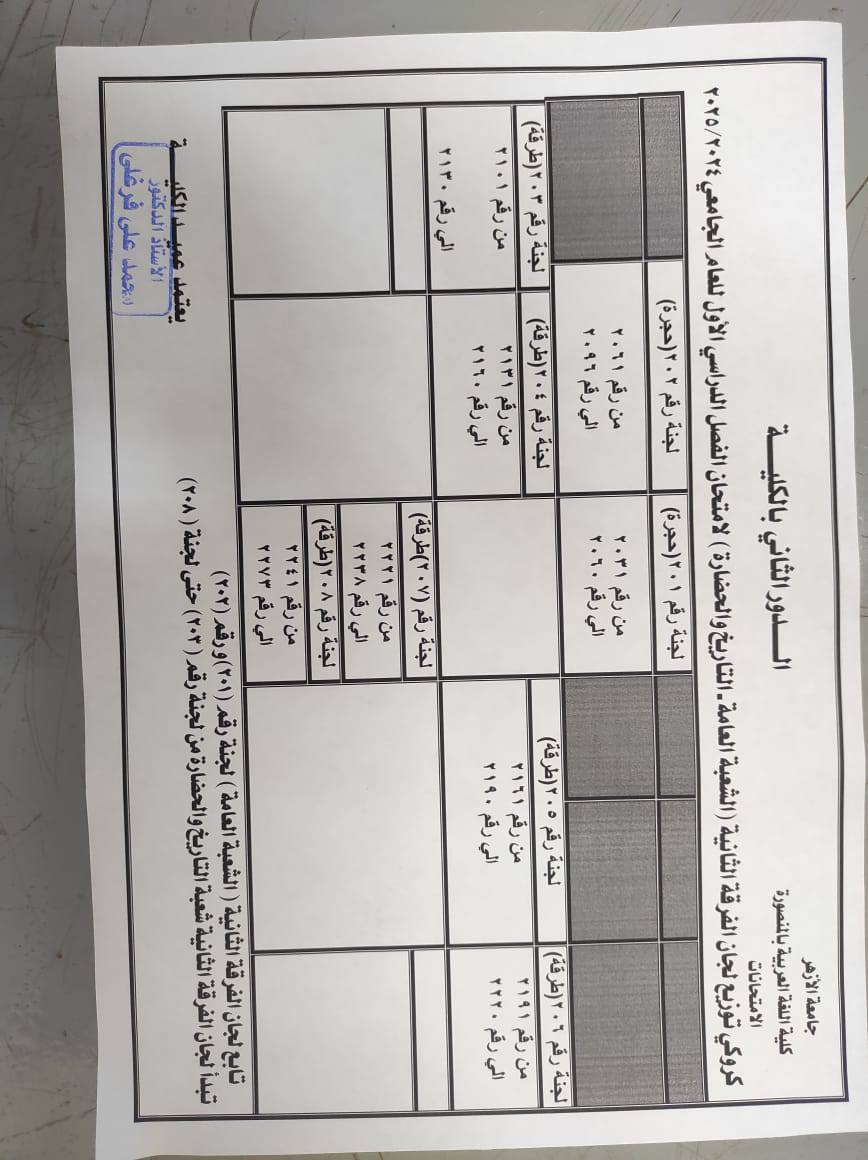 جامعة الأزهر
كلية اللغة العربية بالمنصورة
الامتحانات
الـــدور الثاني بالكليـــة
كروكي توزيع لجان الفرقة الثانية (الشعبة العامة ـ التاريخ والحضارة) لامتحان الفصل الدراسي الأول للعام الجامعي ٢٠٢٥/٢٠٢٤
لجنة رقم ٢٠١(حجرة)
من رقم ٢٠٣١
الي رقم ٢٠٦٠
لجنة رقم ٢٠٢(حجرة)
من رقم ٢٠٦١
الي رقم ٢٠٩٦
لجنة رقم ٢٠٦(طرقة)
من رقم ٢١٩١
الي رقم ٢٢٢٠
لجنة رقم ٢٠٥(طرقة)
من رقم ٢١٦١
الي رقم ٢١٩٠
لجنة رقم ٢٠٤(طرقة)
من رقم ٢١٣١
الي رقم ٢١٦٠
لجنة رقم ٢٠٣(طرقة)
من رقم ٢١٠١
الي رقم ٢١٣٠
لجنة رقم (٢٠٧)طرقة)
من رقم ٢٢٢١
الي رقم ٢٢٣٨
لجنة رقم ٢٠٨(طرقة)
من رقم ٢٢٤١
الي رقم ٢٢٧٣
تابع لجان الفرقة الثانية ( الشعبة العامة ) لجنة رقم (٢٠١) و رقم (٢٠٢)
تبدأ لجان الفرقة الثانية شعبة التاريخ والحضارة من لجنة رقم (٢٠٣) حتى لجنة (٢٠٨)
يعتمد عميـــد الكليـــة
الأستاذ الدكتور
أحمد على فرغلى